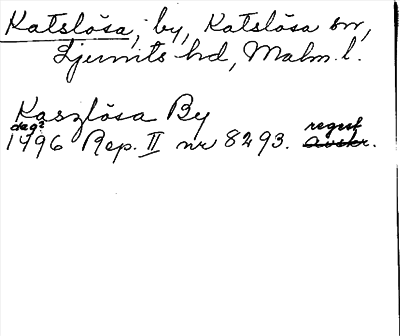 Katslösa, by, Katslösa sn,
Ljunits hd, Malm. l.
Kaszlösa By
dag?
1496 Rep. II nr 8293. regest avskr.